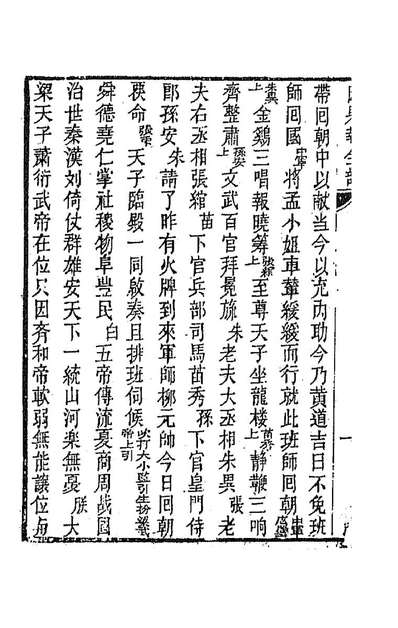 帶囘朝中以献当今以充内助今乃黄道吉日不免班
師囘國 将孟小姐車輦緩緩而行就此班師囘朝
上 金鷄三唱報曉籌 上 至尊天子坐龍楼 上 静鞭三响
齊整肅 上 文武百官拜冕旒 朱 老夫大丞相朱异 張 老
夫右丞相張綰 苗 下官兵部司馬苗秀 孫 下官皇門侍
郎孫安 朱 請了昨有火牌到來軍師柳元帥今日囘朝
𦆵命 衆 天子臨殿一同啟奏且排班伺候 吹打大小監引生扮梁帝上引
舜德堯仁掌社稷物阜豊民 白 五帝傳流夏商周战国
治世秦漢刘倚仗群雄安天下一統山河楽無憂 朕 大
梁天子蕭衍武帝在位只因斉和帝軟弱無能讓位与